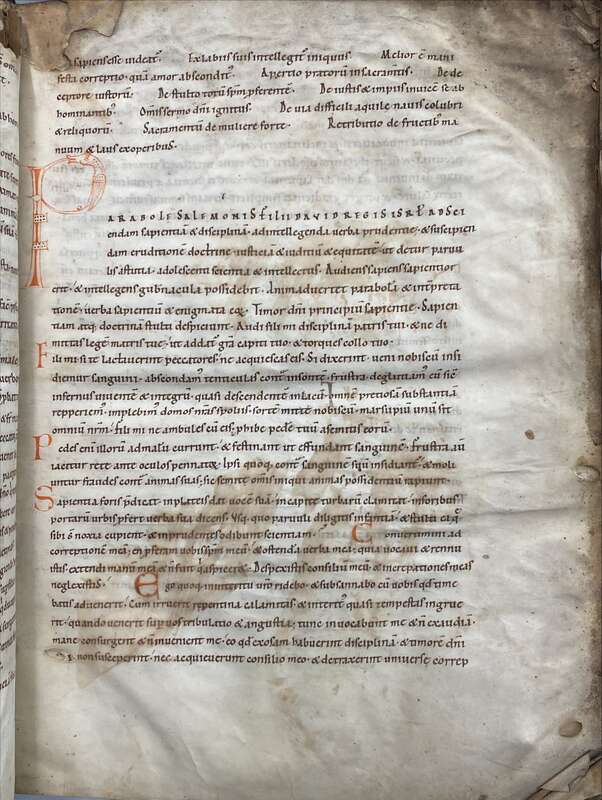 sapiens esse videat᷑. Ex labiis suis intellegit᷑ iniquus. Melior ē mani
festa correptio quā amor abscondit᷑. Apertio pratorū in sacram̄tis. De de
ceptore iustorū. De stulto totū sp̄m p̄ferente. De iustis & impiis invicē se ab
hominantib;. Om̄is sermo dn̄i ignitus. De via difficili aquile navis colubri
& reliquorū. Sacramentū de muliere forte. Retributio de fructib; ma
nuum & laus ex operibus.
PARABOLE SALEMONIS FILII DAVID REGIS ISRL̄ AD SCI
endam sapientiā & disciplinā. ad intellegenda verba prudentie. & suscipien
dam eruditionē doctrine. iustitiā & iuditiū & equitatē. ut detur parvu
lis astutia. adolescenti scientia & intellectus. Audiens sapiens sapientior
erit. & intellegens gubnacula possidebit. Animadvertet parabolā & interp̄ta
tionē. verba sapientiū & enigmata eoꝝ. Timor dn̄i principiū sapientie. Sapien
tiam atq; doctrinā stulti despiciunt. Audi fili mi disciplinā patris tui. & ne di
mittas legē matris tue. ut addat᷑ gr̄a capiti tuo. & torques collo tuo.
Fili mi si te lactaverint peccatores. ne acquiescas eis. Si dixerint. veni nobiscū insi
diemur sanguini. abscondam᷒ tendiculas cont᷑ insontē frustra. deglutiam᷒ eū sic᷑
infernus viventē & integrū. quasi descendentē in lacū. omnē pretiosā substantiā
repperiem᷒. implebim᷒ domos nr̄as spoliis. sortē mitte nobiscū. marsupiū unū sit
omniū nrm̄. fili mi ne ambules cū eis. phibe pedē tuū a semitis eorū.
Pedes eni illorū ad malū currunt. & festinant ut effundant sanguinē. frustra aū
iacetur rete ante oculos pennatoꝝ. Ipsi quoq; cont᷑ sanguinē suū insidiant᷑. & moli
untur fraudes cont᷑ animas suas. sic semitę om̄is avari animas possidentiū rapiunt.
Sapientia foris p̄dicat. in plateis dat vocē suā. in capite turbarū clamitat. in foribus
portarū urbis pfert verba sua dicens. Usq; quo parvuli diligitis infantiā. & stulti ea q̄
sibi s̄ noxia cupient. & inprudentes odibunt scientiam. Convertimini ad
correptionē meā. en pferam vobis sp̄m meū. & ostendā verba mea. quia vocavi & rennu
istis. extendi manū meā & n̄ fuit q̄ aspiceret. Despexistis consiliū meū. & increpationes meas
neglexistis. Ego quoq; in interitu vr̄o ridebo. & subsannabo cū vobis qd time
batis advenerit. Cum irruerit repentina calamitas. & interit᷒ quasi tempestas ingrue
rit. quando venerit sup vos tribulatio & angustia. tunc invocabunt me & n̄ exaudiā.
mane consurgent & n̄ invenient me. eo qd exosam habuerint disciplinā. & timorē dn̄i
non susceperint. nec acquieverint consilio meo. & detraxerint universę correp